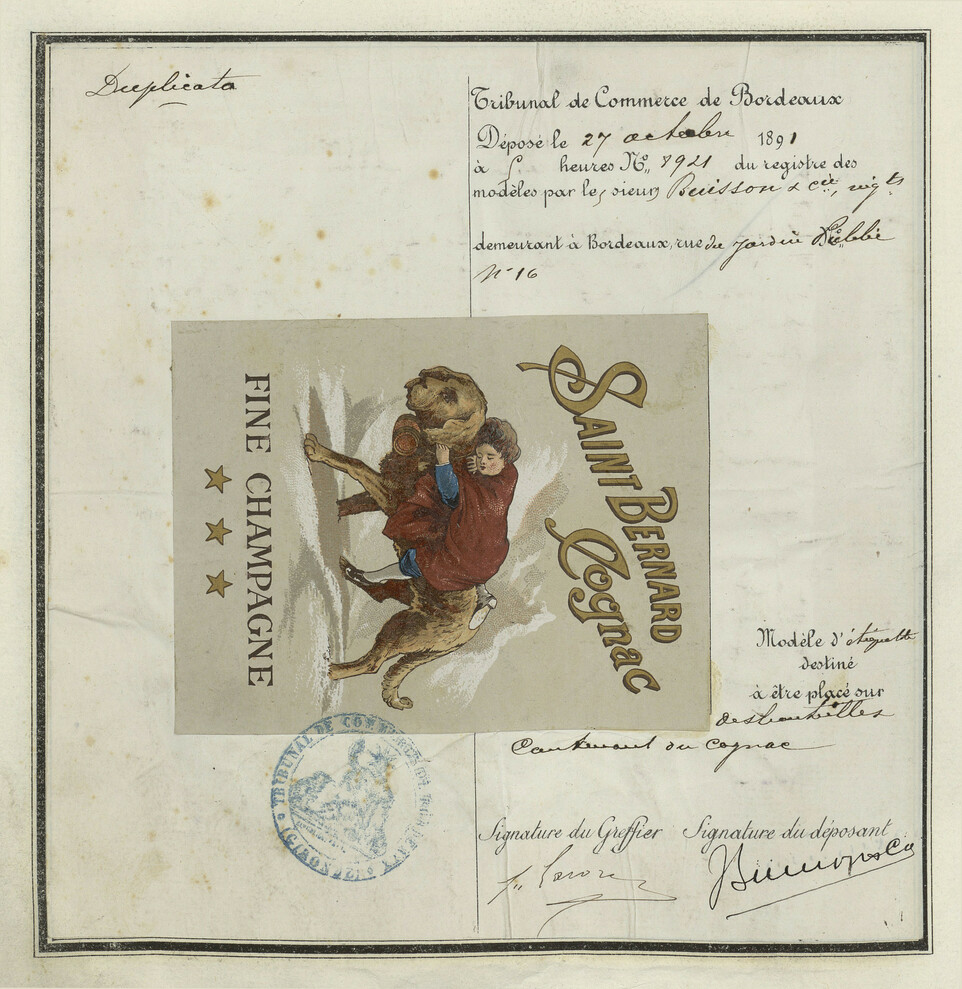 Duplicata
Tribunal de Commerce de Bordeaux
Déposé le 27 octobre 1891
à heures No 8921 du registre des
modèles par les sieurs Buisson & Cie, nigts
demeurant à Bordeaux, rue du Jardin Public
No 16
SAINT BERNARD
Cognac
FINE CHAMPAGNE
Modèle d'étiquette
destiné
à être placé sur
des bouteilles
Contenant du cognac
TRIBUNAL DE COMMERCE DE BORDEAUX
(GIRONDE)
Signature du Greffier Signature du déposant